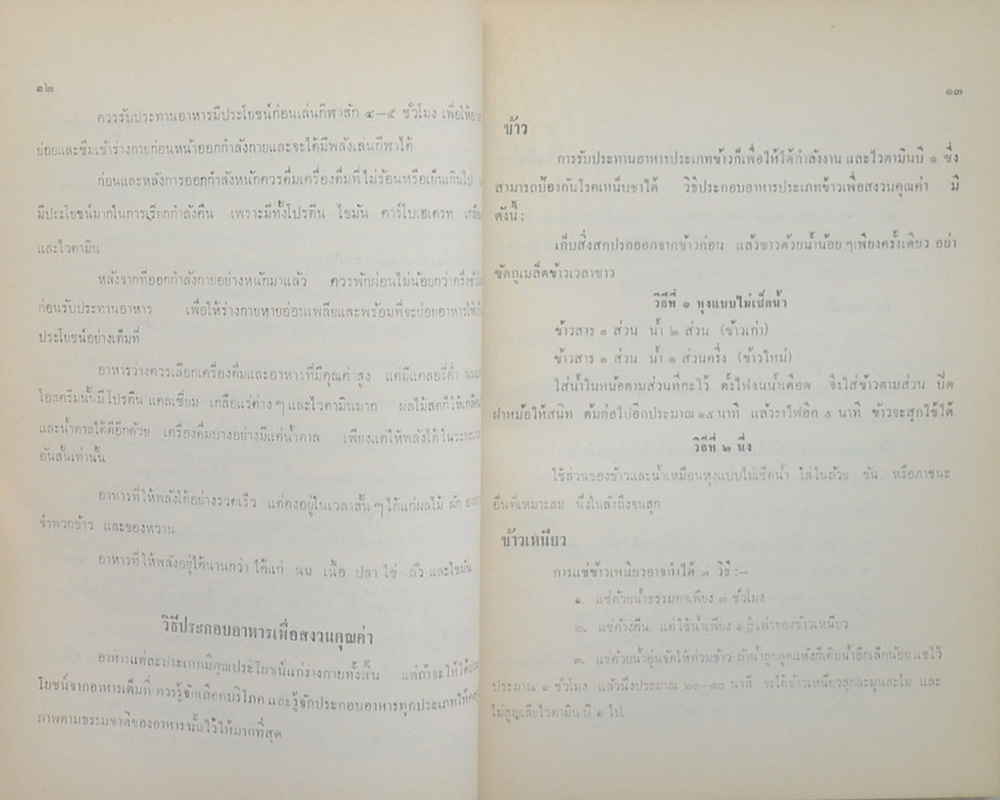 ๑๒
ควรรับประทานอาหารมีประโยชน์ก่อนเล่นกีฬาสัก ๔—๕ ชั่วโมง เพื่อให้
ย่อยและซึมเข้าร่างกายก่อนหน้าออกกำลังกายและจะได้มีพลังเล่นกีฬาได้
ก่อนและหลังการออกกำลังหนักควรดื่มเครื่องดื่มที่ไม่ร้อนหรือเย็นเกินไป
มีประโยชน์มากในการเรียกกำลังคืน เพราะมีทั้งโปรตีน ไขมัน คาร์โบเฮเดรท
และไวตามิน
หลังจากที่ออกกำลังกายอย่างหนักมาแล้ว ควรพักผ่อนไม่น้อยกว่า
ก่อนรับประทานอาหาร เพื่อให้ร่างกายหายอ่อนเพลียและพร้อมที่จะย่อยอาหารให้
ประโยชน์อย่างเต็มที่
อาหารว่างควรเลือกเครื่องดื่มและอาหารที่มีคุณค่าสูง แต่มีแคลอรี่ต่ำ
ไอสครีมนั้นมีโปรตีน แคลเซี่ยม เกลือแร่ต่าง ๆ และไวตามินมาก ผลไม้สดก็ให้
และน้ำตาลได้ดีอีกด้วย เครื่องดื่มบางอย่างมีแต่น้ำตาล เพียงแต่ให้พลังได้ใน
อันสั้นเท่านั้น
อาหารที่ให้พลังได้อย่างรวดเร็ว แต่คงอยู่ในเวลาสั้น ๆ ได้แก่ผลไม้ ผัก
จำพวกข้าว และของหวาน
อาหารที่ให้พลังอยู่ได้นานกว่า ได้แก่ นม เนื้อ ปลา ไข่ ถั่ว และไขมัน
วิธีประกอบอาหารเพื่อสงวนคุณค่า
อาหารแต่ละประเภทมีคุณประโยชน์แก่ร่างกายทั้งสิ้น แต่ถ้าจะให้ได้
โยชน์จากอาหารเต็มที่ ควรรู้จักเลือกบริโภค และรู้จักประกอบอาหารทุกประเภทให้
ภาพตามธรรมชาติของอาหารนั้นไว้ให้มากที่สุด
๑๓
ข้าว
การรับประทานอาหารประเภทข้าวก็เพื่อให้ได้กำลังงาน และไวตามินบี ๑ ซึ่ง
สามารถป้องกันโรคเหน็บชาได้ วิธีประกอบอาหารประเภทข้าวเพื่อสงวนคุณค่า มี
ดังนี้:
เก็บสิ่งสกปรกออกจากข้าวก่อน แล้วซาวด้วยน้ำน้อย ๆ เพียงครั้งเดียว อย่า
ขัดถูเมล็ดข้าวเวลาซาว
วิธีที่ ๑ หุงแบบไม่เช็ดน้ำ
ข้าวสาร ๑ ส่วน น้ำ ๒ ส่วน (ข้าวเก่า)
ข้าวสาร ๑ ส่วน น้ำ ๑ ส่วนครึ่ง (ข้าวใหม่)
ใส่น้ำในหม้อตามส่วนที่กะไว้ ตั้งไฟจนน้ำเดือด จึงใส่ข้าวตามส่วน ปิด
ฝาหม้อให้สนิท ต้มต่อไปอีกประมาณ ๑๕ นาที แล้วราไฟอีก ๕ นาที ข้าวจะสุกใช้ได้
วิธีที่ ๒ นึ่ง
ใช้ส่วนของข้าวและน้ำเหมือนหุงแบบไม่เช็ดน้ำ ใส่ในถ้วย ขัน หรือภาชนะ
อื่นที่เหมาะสม นึ่งในลังถึงจนสุก
ข้าวเหนียว
การแช่ข้าวเหนียวอาจทำได้ ๓ วิธี:—
๑. แช่ด้วยน้ำธรรมดาเพียง ๓ ชั่วโมง
๒. แช่ค้างคืน แต่ใช้น้ำเพียง เท่าของข้าวเหนียว
๓. แช่ด้วยน้ำอุ่นจัดให้ท่วมข้าว ถ้าน้ำถูกดูดแห้งก็เติมน้ำอีกเล็กน้อย แช่ไว้
ประมาณ ๑ ชั่วโมง แล้วนึ่งประมาณ ๒๐—๓๐ นาที จะได้ข้าวเหนียวสุกละมุนละไม และ
ไม่สูญเสียไวตามิน บี. ๑ ไป.